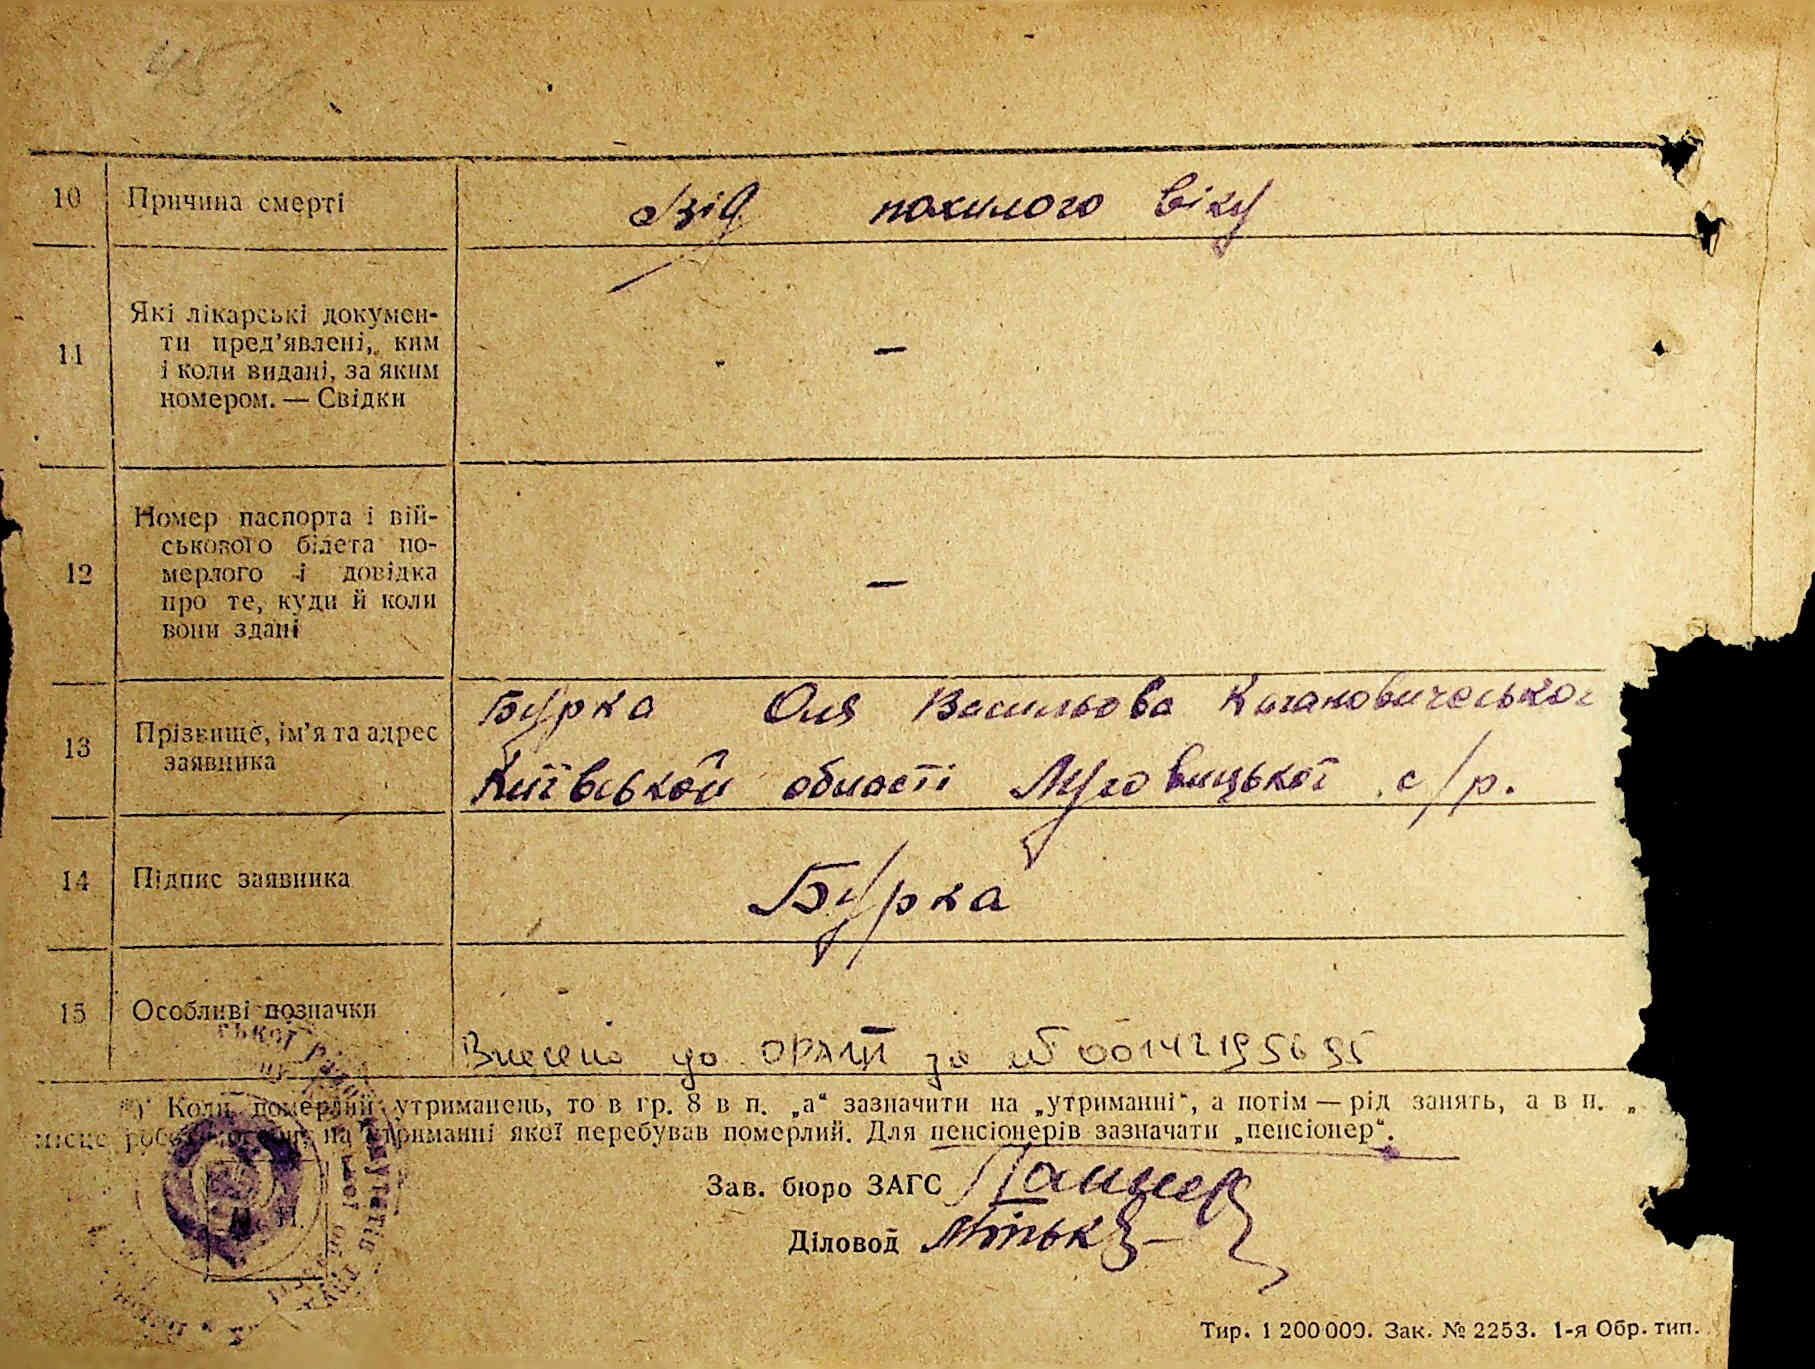 10 Причина смерті Від похилого віку
11 Які лікарські докумен-
ти пред’явлені, ким
і коли видані, за яким
номером. — Свідки
—
12 Номер паспорта і вій-
ськового білета по-
мерлого і довідка
про те, куди й коли
вони здані
—
13 Прізвище, ім’я та адрес
заявника
Бурка Оля Васильова Кагановичеськог
Київської області Луговицької с/р.
14 Підпис заявника Бурка
15 Особливі позначки
Внесено до ОРАЦП за № 00142195695
*) Коли померлий утриманець, то в гр. 8 в п. „а“ зазначити на „утриманні“, а потім — рід занять, а в п. „
місце роботи на утриманні якої перебував померлий. Для пенсіонерів зазначати „пенсіонер“.
Зав. бюро ЗАГС
Діловод
Тир. 1 200 000. Зак. № 2253. 1-я Обр. тип.